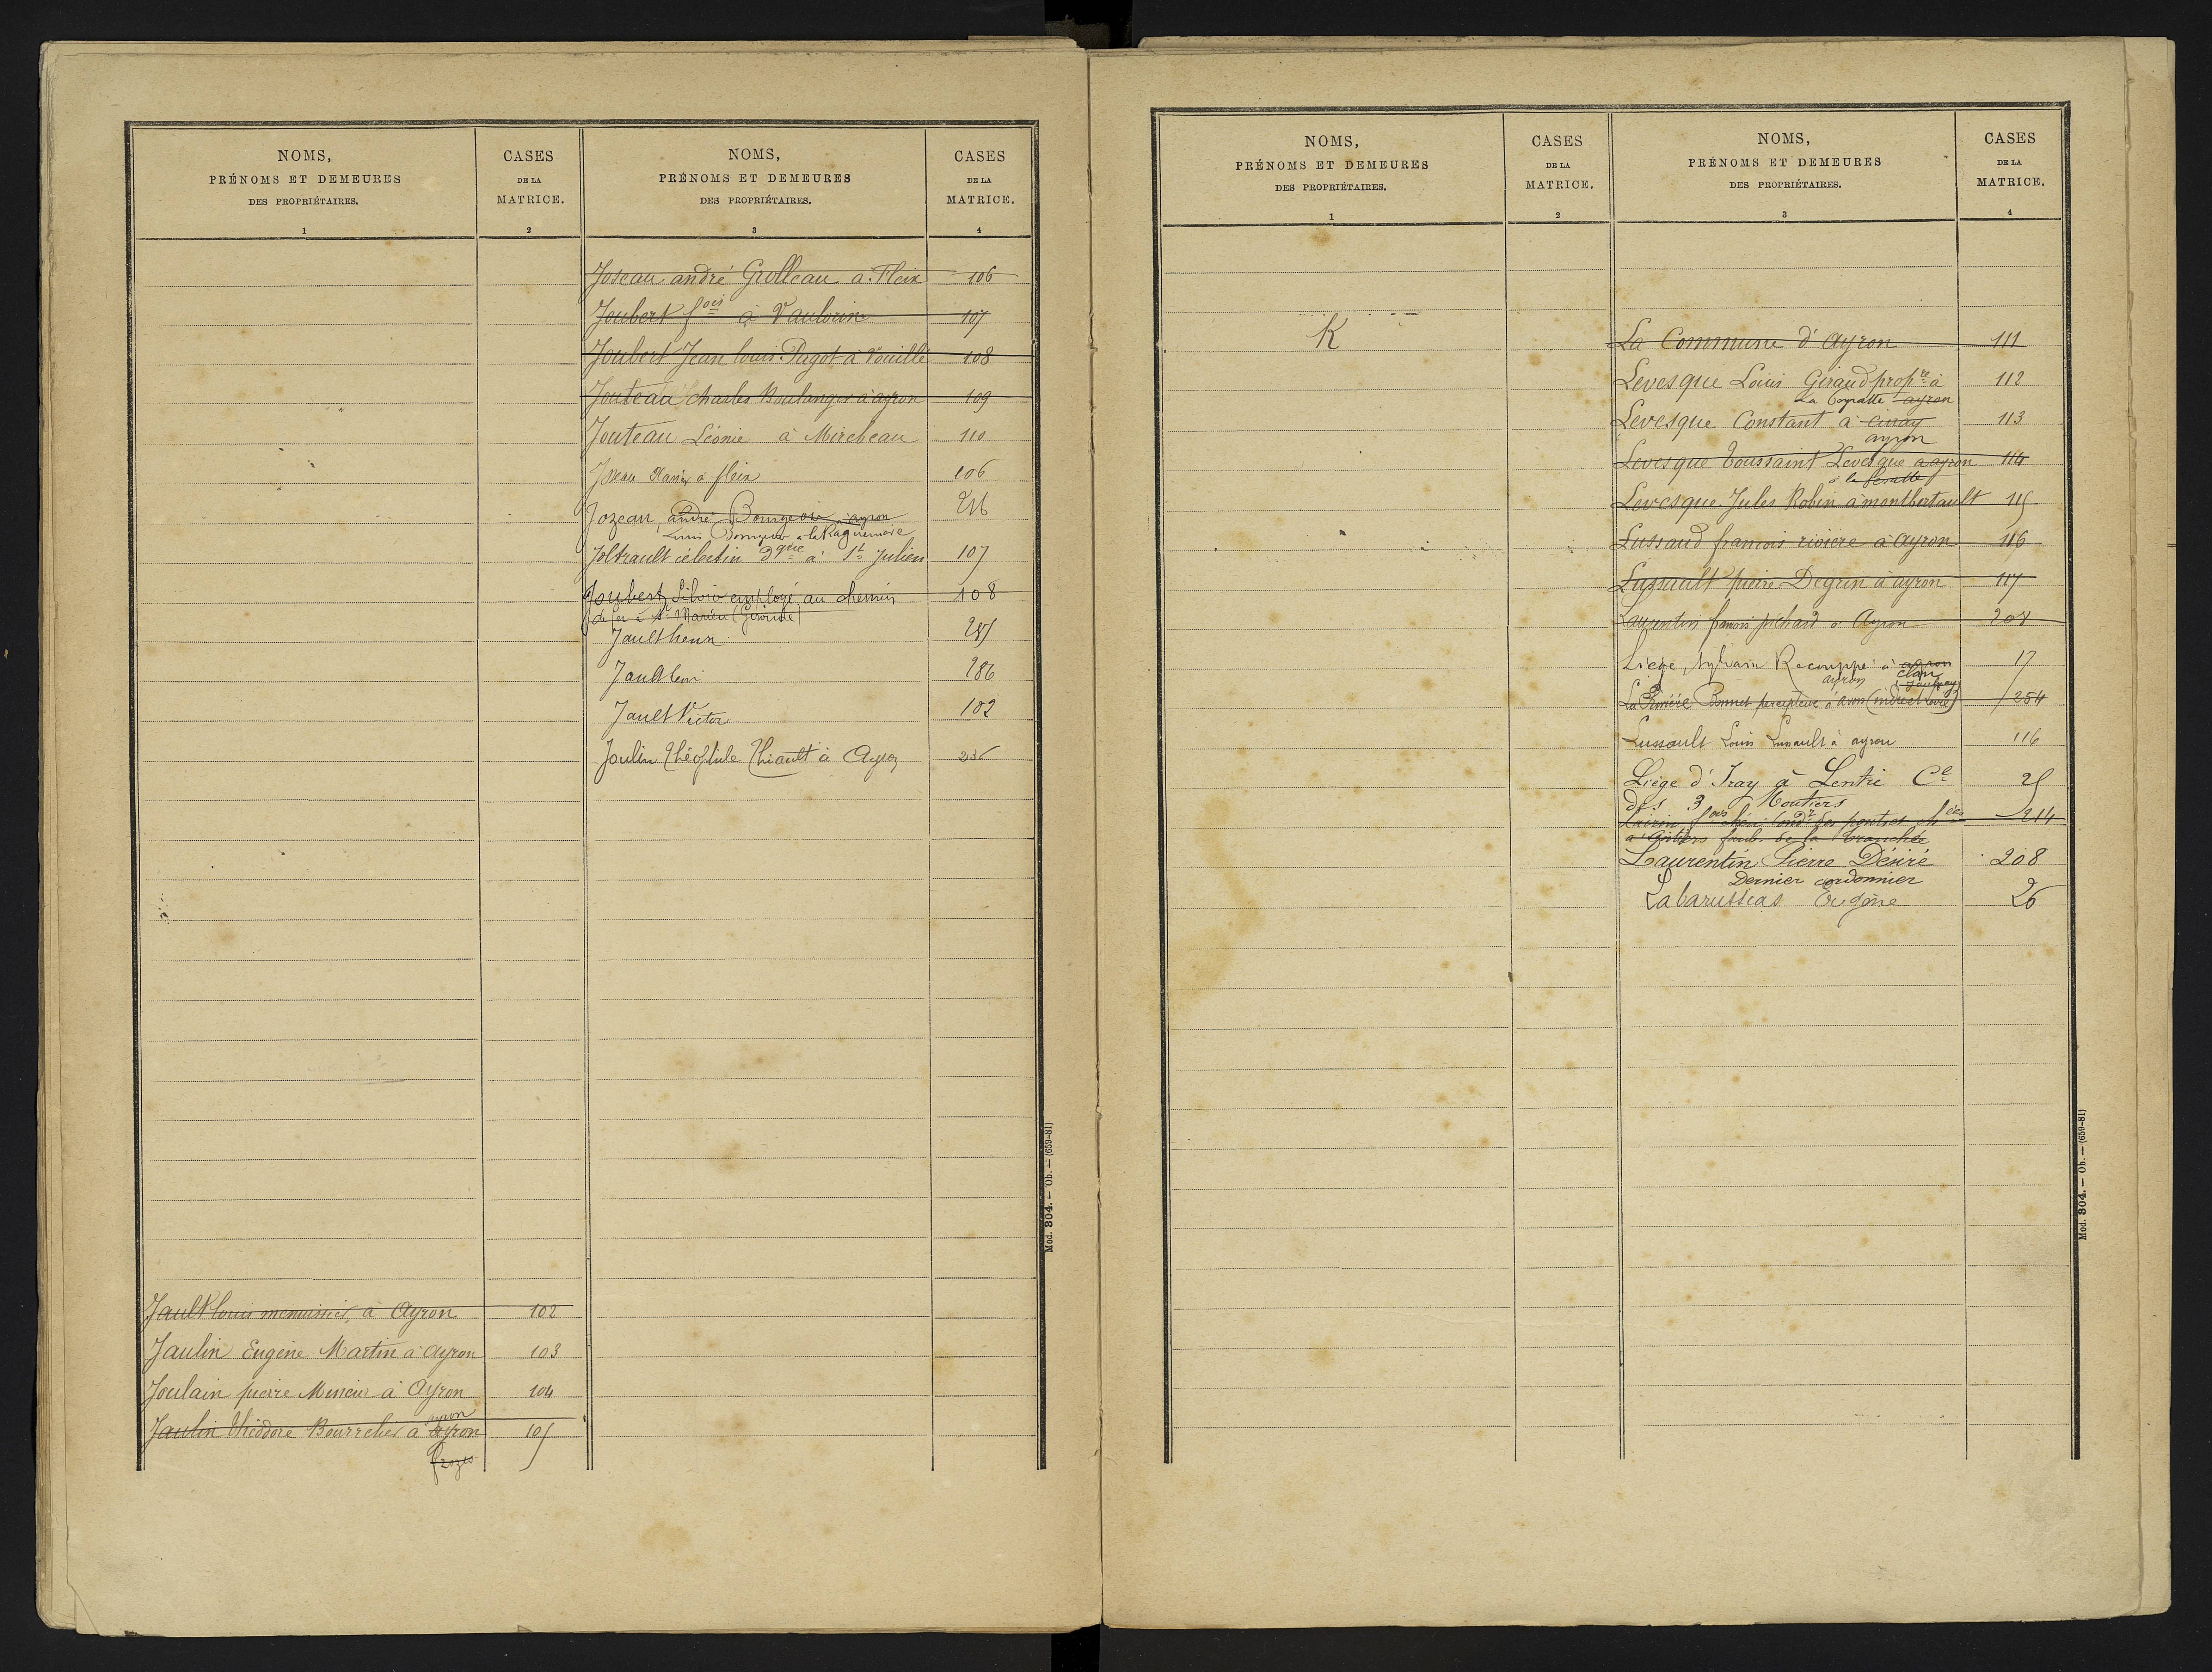 NOMS,
PRÉNOMS ET DEMEURES
DES PROPRIÉTAIRES.
1
CASES
DE LA
MATRICE.
2
Jault louis menuisier, à Ayron 102
Jaulin Eugène Martin à Ayron 103
Joulain pierre Mineur à Ayron 104
ayron
Jaulin théodore Bourrelier à Ayron 105
frozes
NOMS,
PRÉNOMS ET DEMEURES
DES PROPRIÉTAIRES.
3
CASES
DE LA
MATRICE.
4
Joseau andré Grolleau à Fleix 106
Joubert fois à Vaulorin 107
Joubert Jean louis Pugot à Vouillé 108
Jouteau Charles Boulanger à ayron 109
Jouteau Léonie à Mirebeau 110
Joseau Xavier à fleix 106
Jozeau, andré Bourgeois à ayron 216
Louis à la Raguenaire
Joltrault célestin dque à St Julien 107
Joubert Silvin employé au chemin 108
de fer à St Marien (Gironde)
Jault henri 285
Jault leon 286
Jault Victor 102
Joulin Théophile Thiault à Ayron 236
Mod. 304. — Ob. — (659-81)
NOMS,
PRÉNOMS ET DEMEURES
DES PROPRIÉTAIRES.
1
CASES
DE LA
MATRICE.
2
K
NOMS,
PRÉNOMS ET DEMEURES
DES PROPRIÉTAIRES.
3
CASES
DE LA
MATRICE.
4
La Commune d'ayron 111
Levesque Louis Giraud propre à 112
La ayron
Levesque Constant à Civray 113
ayron
Levesque toussaint Levesque à ayron 114
à la
Levesque Jules Robin à montbertault 115
Lussaud francois riviere à ayron 116
Lussault pierre Degrin à ayron 117
Laurentin francois pichard à Ayron 208
Liège, Sylvain Recouppé à ayron 17
ayron clan
Jaulnay
La Rivière Bonnet percepteur à avon (indre et loire) 254
Lussault Louis Lussault à ayron 116
Liège d'Iray à Lentré Ce 25
des 3 Moutiers
fois condr des ponts et chées 214
à Poitiers faub. de la tranchée
Laurentin Pierre Désiré 208
Dernier cordonnier
Labarussias Eugène 26
Mod. 304. — Ob. — (659-81)